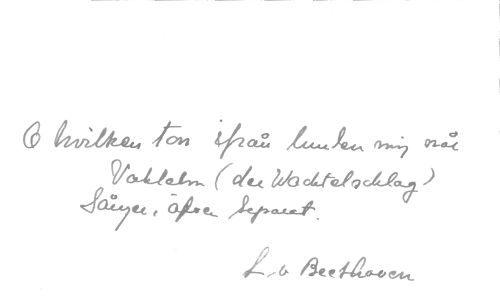 O hvilken ton ifrån lunden mig når
Vakteln (der Wachtelschlag)
Sånger, äfven separat.
L. v Beethoven